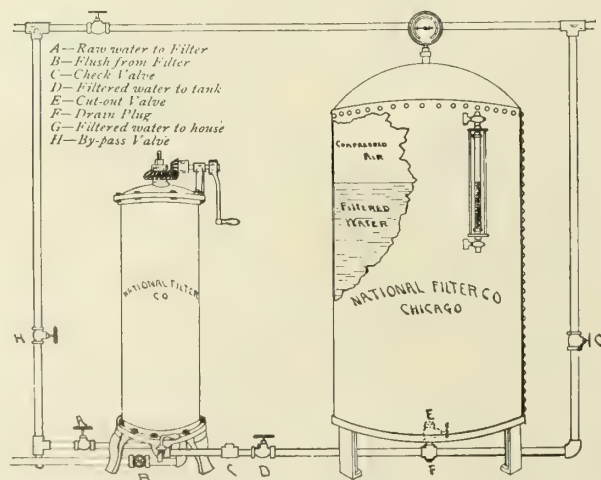 A—Raw water to Filter
B—Flush from Filter
C—Check Valve
D—Filtered water to tank
E—Cut-out Valve
F—Drain Plug
G—Filtered water to house
H—By-pass Valve
COMPRESSED
AIR
FILTERED
WATER
NATIONAL FILTER
CO
NATIONAL FILTER CO
CHICAGO
H
G
A
E
B
C
D
F